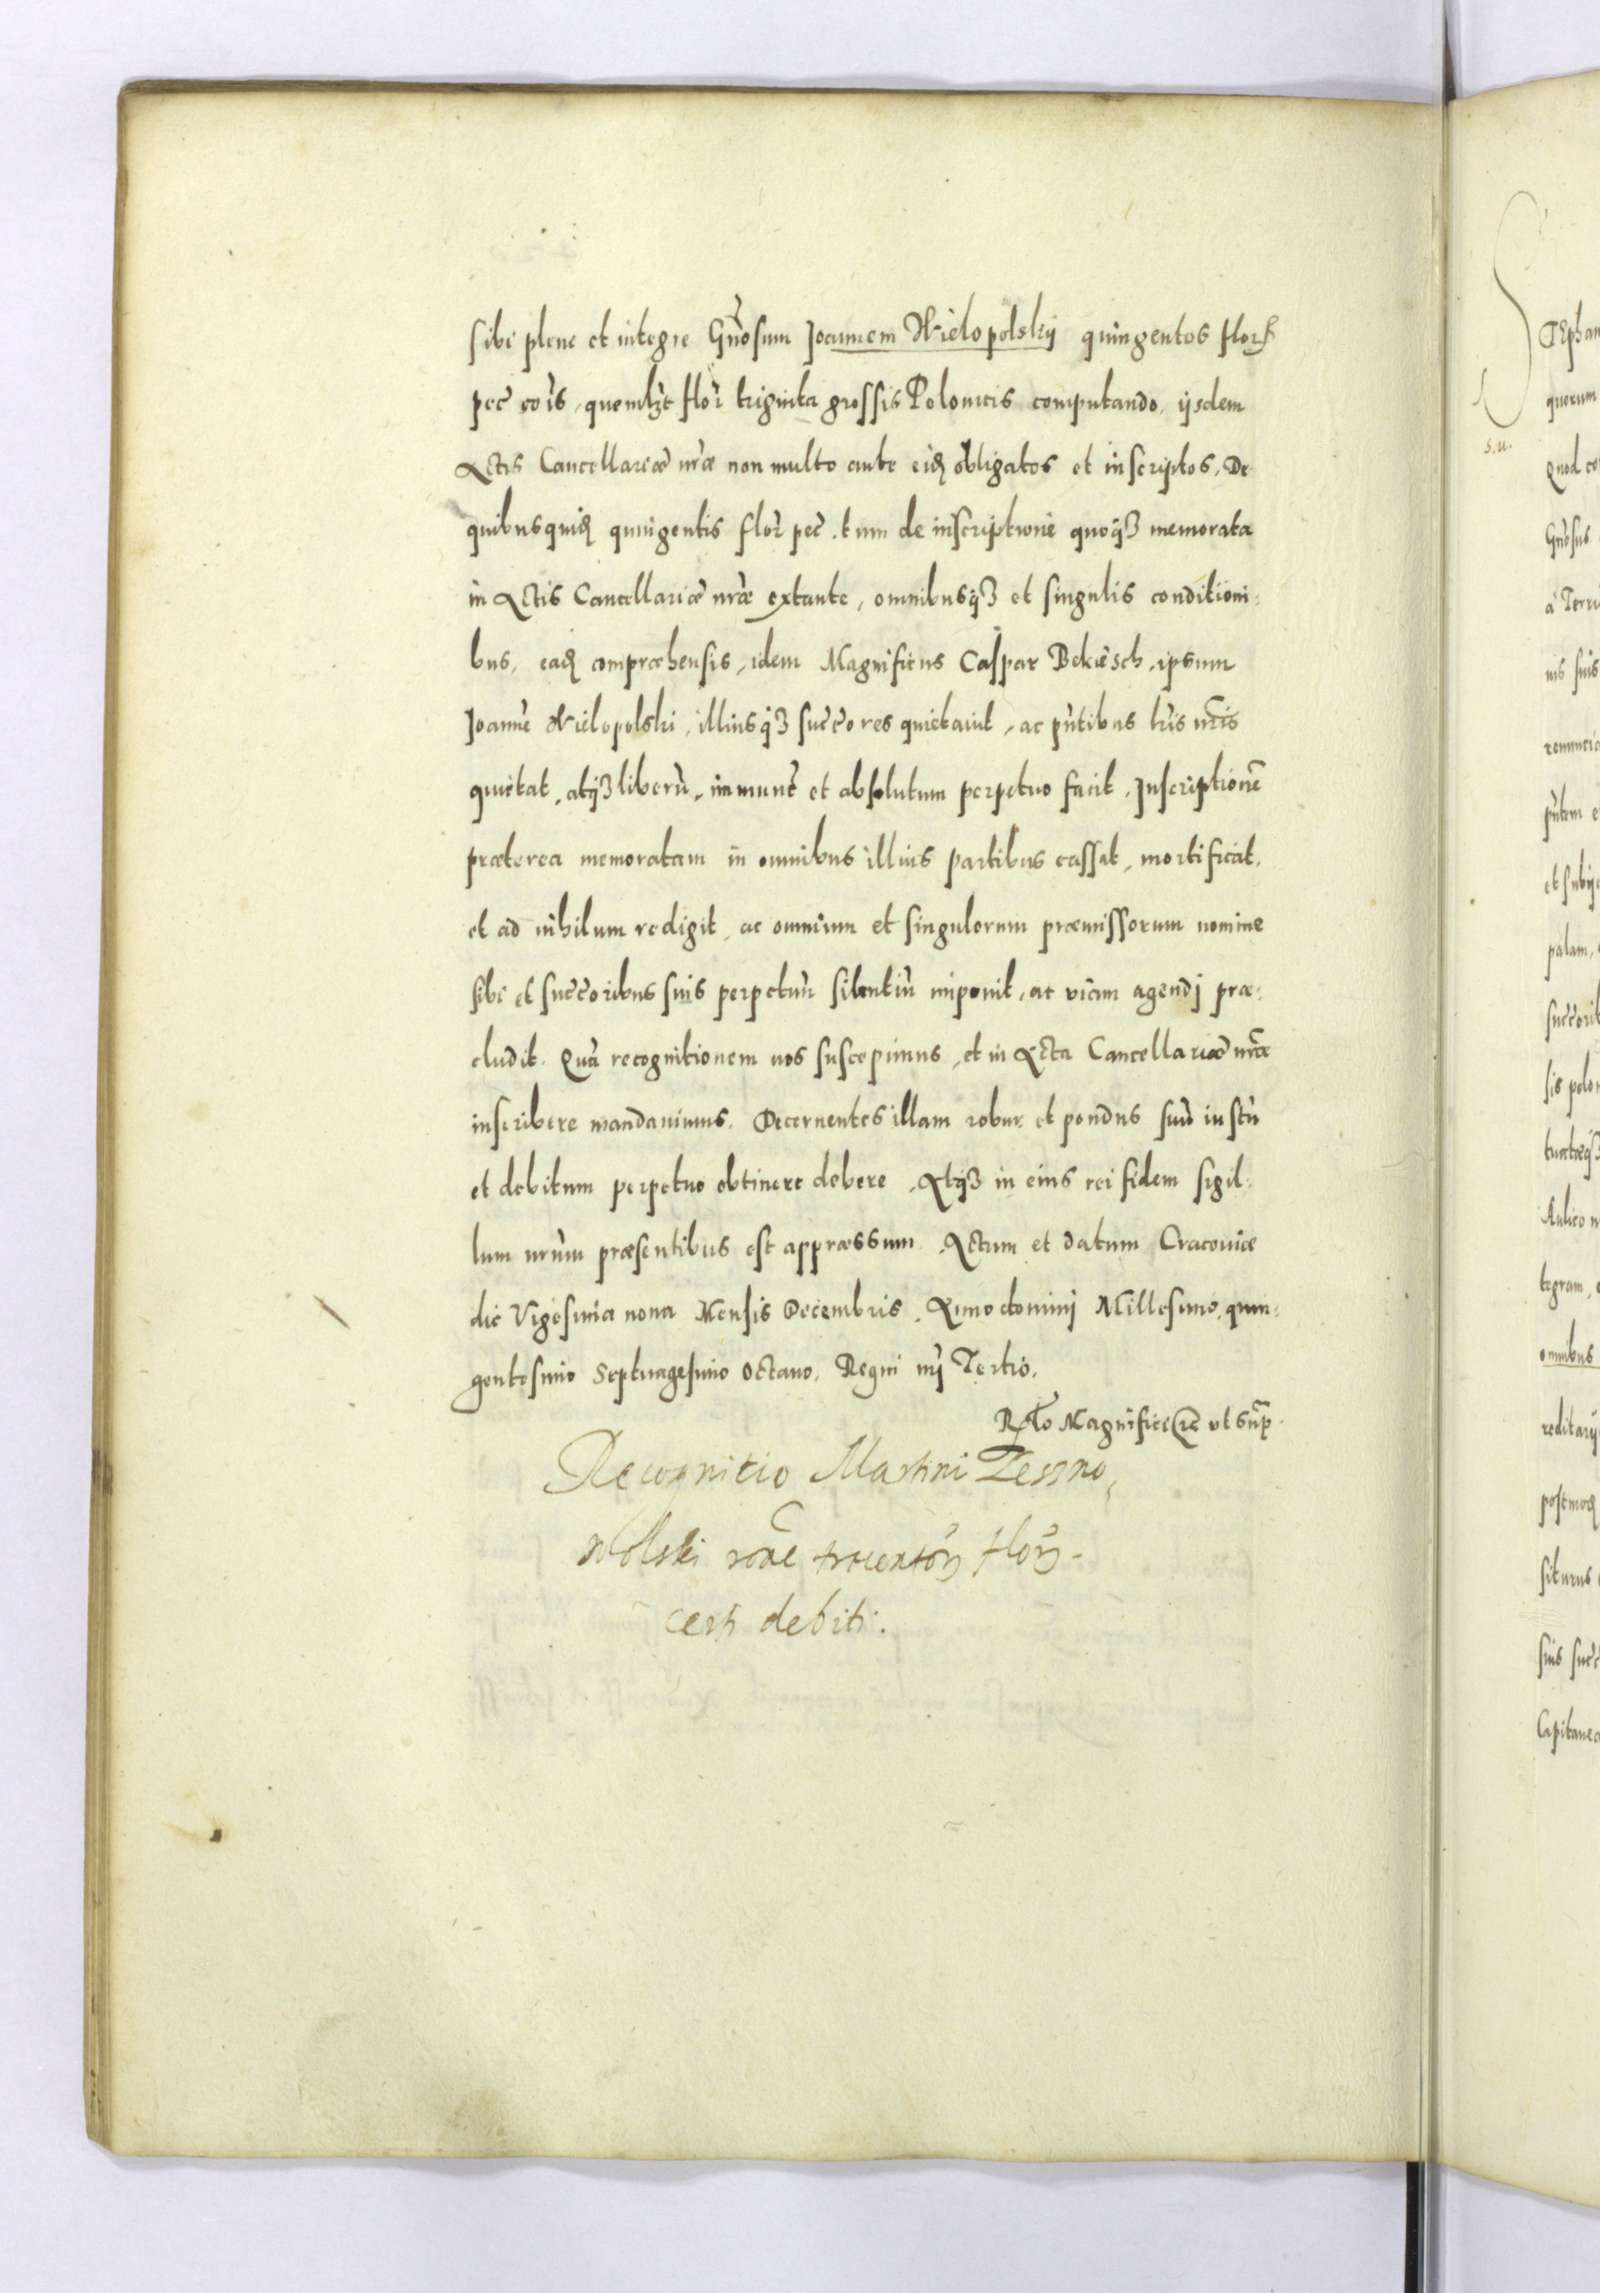 sibi plene et integre Gnosum Joannem Wielopolskij quingentos flor
pec cois, quemlzt flor triginta grossis Polonicis computando, ijsdem
Actis Cancellariæ nræ non multo ante eidꝫ obligatos et inscriptos, De
quibus quidꝫ quingentis flor pec. tum de inscriptione quoqꝫ memorata
in Actis Cancellariæ nræ extante, omnibusqꝫ et singulis conditioni:
bus, eadꝫ compræhensis, idem Magnificus Caspar Bekiesch, ipsum
Joanne Wielopolski, illiusqꝫ succores quietauit, ac pntibus lris nris
quietat, atqꝫ liberu, immune et absolutum perpetuo facit, Inscriptione
præterea memoratam in omnibus illius partibus cassat, mortificat,
et ad nihilum redigit, ac omnium et singulorum præmissorum nomine
sibi et succoribus suis perpetuu silentiu imponit, ac viam agendj præ:
cludit. Qua recognitionem nos suscepimus, et in Acta Cancellariæ nræ
inscribere mandauimus. Decernentes illam robur et pondus suu iustu
et debitum perpetuo obtinere debere, Atqꝫ in eius rei fidem sigil:
lum nrum præsentibus est appræssum. Actum et datum Cracouiæ
die Vigesima nona Mensis Decembris. Anno dominj Millesimo, quin:
gentesimo Septuagesimo Octauo, Regni nrj Tertio.
Rlto Magnifici etc vt sup.
Recognitio Martini Lessno,
wolski rone trecentor flor
certi debiti.
STEphan
quorum
s.u.
Quod
Gnosus
a Terri
nis suis
renuncia
pntem e
et subij
palam,
succorib
sis polo
Aulico n
tegram,
omnibus
reditarij
postmodꝫ
siturus
suis succ
Capitanea